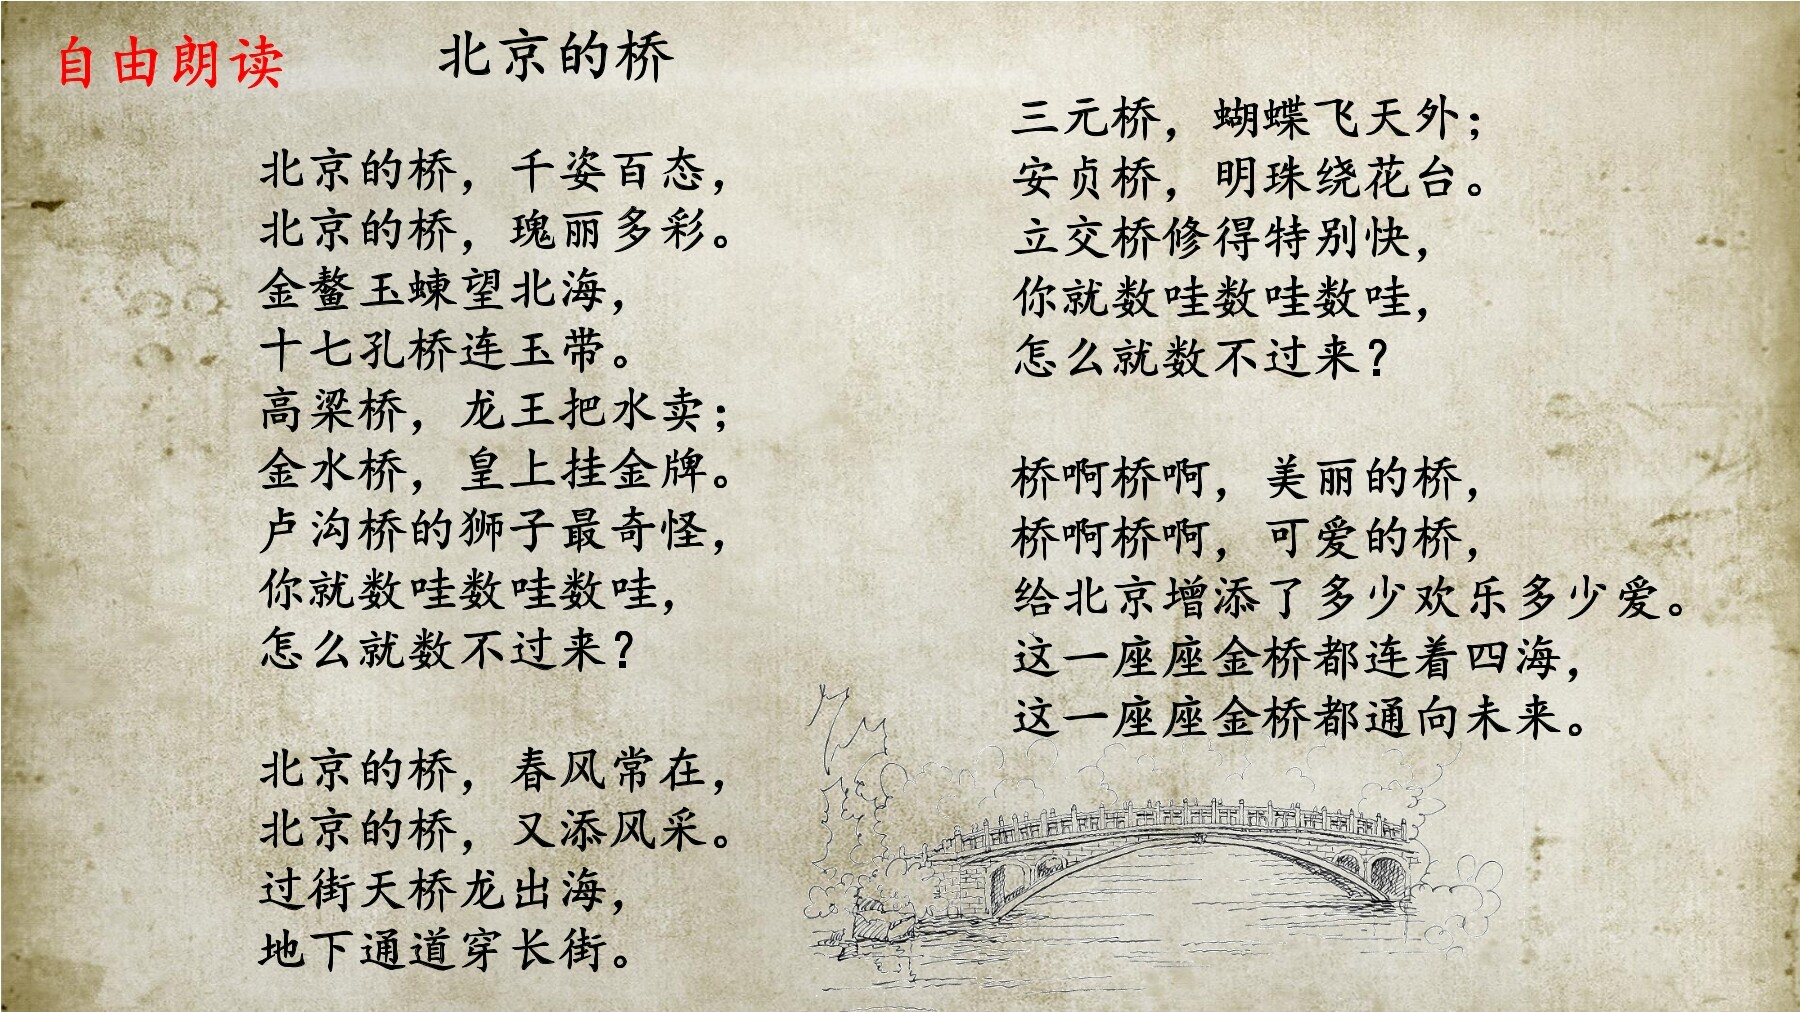 自由朗读
北京的桥
北京的桥，千姿百态，
北京的桥，瑰丽多彩。
金鳌玉蝀望北海，
十七孔桥连玉带。
高梁桥，龙王把水卖；
金水桥，皇上挂金牌。
卢沟桥的狮子最奇怪，
你就数哇数哇数哇，
怎么就数不过来？
北京的桥，春风常在，
北京的桥，又添风采。
过街天桥龙出海，
地下通道穿长街。
三元桥，蝴蝶飞天外；
安贞桥，明珠绕花台。
立交桥修得特别快，
你就数哇数哇数哇，
怎么就数不过来？
桥啊桥啊，美丽的桥，
桥啊桥啊，可爱的桥，
给北京增添了多少欢乐多少爱。
这一座座金桥都连着四海，
这一座座金桥都通向未来。